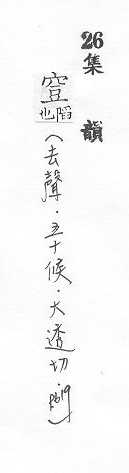 26集韻
也陷(去聲.五十候.大透切 p619)